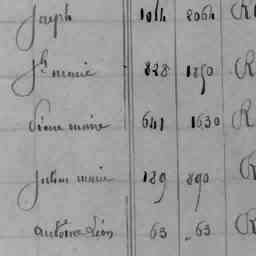 Joseph 1014 2064 R
Jh marie 828 1890 R
641 1630 R
Julien marie 189 890 R
antoine Léon 63 63 R